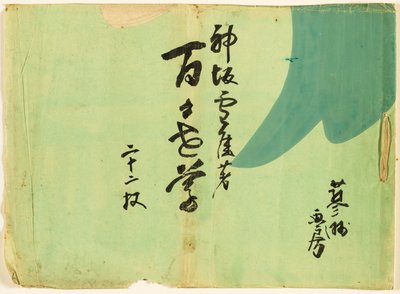 神坂雪佳著
百々世草
二十二枚
画房